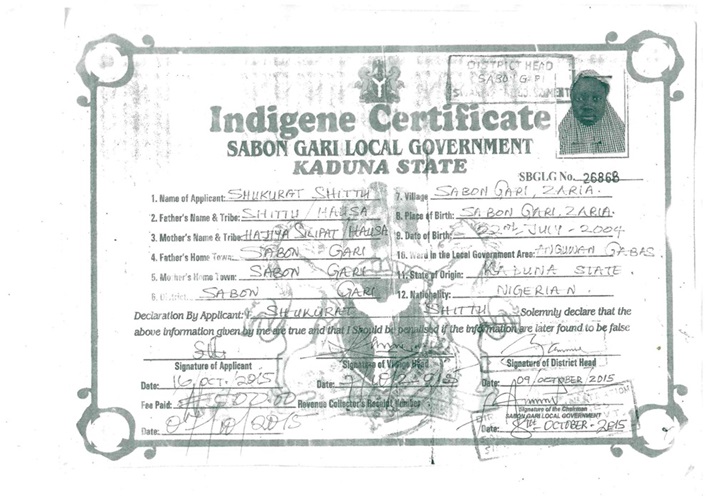 DISTRICT HEAD
SABON GARI
Indigene Certificate
SABON GARI LOCAL GOVERNMENT
KADUNA STATE
SBGLG No. 26868
1. Name of Applicant: SHUKURAT SHITTU
7. Village SABON GARI, ZARIA.
2. Father's Name & Tribe: SHITTU / HAUSA
8. Place of Birth: SABON GARI, ZARIA.
3. Mother's Name & Tribe: HAJIYA SILIFAT / HAUSA
9. Date of Birth: 22nd JULY - 2004
4. Father's Home Town: SABON GARI
10. Ward in the Local Government Area: ANGUWAN GABAS
5. Mother's Home Town: SABON GARI
11. State of Origin: KADUNA STATE.
6. District SABON GARI
12. Nationality: NIGERIAN.
Declaration By Applicant: I SHUKURAT SHITTU Solemnly declare that the
above information given by me are true and that I Should be penalised if the information are later found to be false
Signature of Applicant
Signature of Village Head
Signature of District Head
Date: 16, OCT, 2015
Date:
Date: 09/OCTOBER, 2015
Fee Paid:
Revenue Collector's Receipt Number
Signature of the Chairman
SABON GARI LOCAL GOVERNMENT
Date:
Date: OCTOBER - 2015